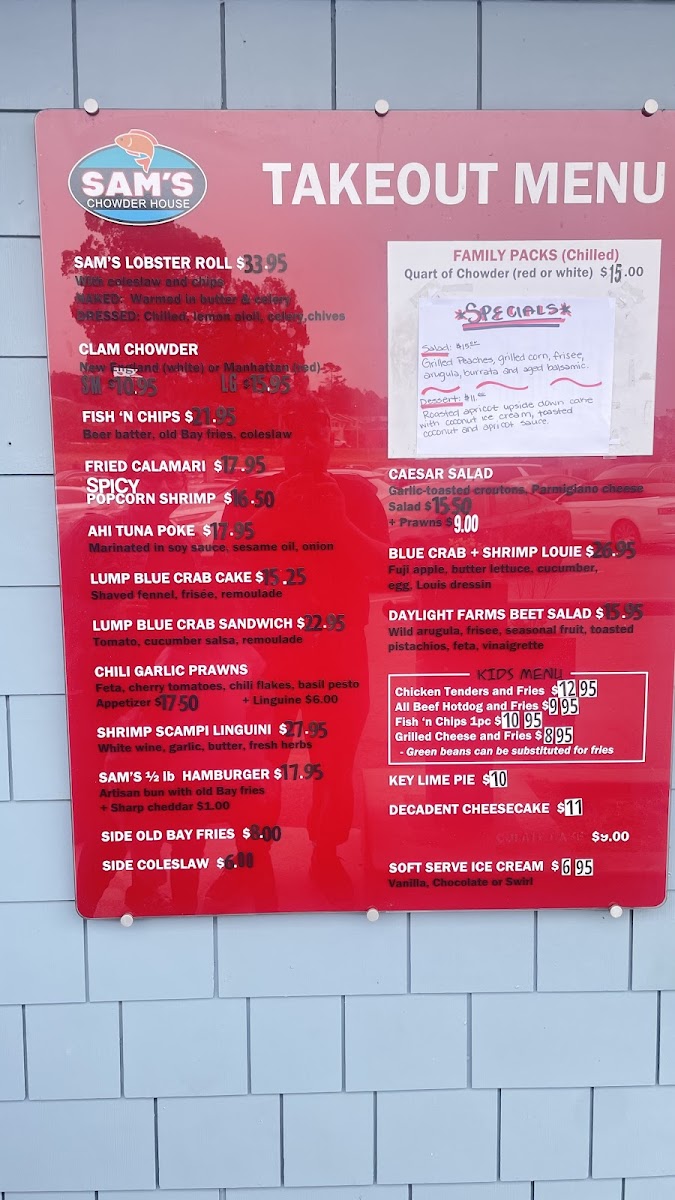 SAM'S
CHOWDER HOUSE
TAKEOUT MENU
SAM'S LOBSTER ROLL $33.95
With coleslaw and chips
NAKED: Warmed in butter & celery
DRESSED: Chilled, lemon aioli, celery, chives
CLAM CHOWDER
New England (white) or Manhattan (red)
SM $10.95 LG $15.95
FISH 'N CHIPS $21.95
Beer batter, old Bay fries, coleslaw
FRIED CALAMARI $17.95
SPICY
POPCORN SHRIMP $16.50
AHI TUNA POKE $17.95
Marinated in soy sauce, sesame oil, onion
LUMP BLUE CRAB CAKE $15.25
Shaved fennel, frisée, remoulade
LUMP BLUE CRAB SANDWICH $22.95
Tomato, cucumber salsa, remoulade
CHILI GARLIC PRAWNS
Feta, cherry tomatoes, chili flakes, basil pesto
Appetizer $17.50 + Linguine $6.00
SHRIMP SCAMPI LINGUINI $27.95
White wine, garlic, butter, fresh herbs
SAM'S ½ lb HAMBURGER $17.95
Artisan bun with old Bay fries
+ Sharp cheddar $1.00
SIDE OLD BAY FRIES $8.00
SIDE COLESLAW $6.00
FAMILY PACKS (Chilled)
Quart of Chowder (red or white) $15.00
*SPECIALS*
Salad: $15.00
Grilled Peaches, grilled corn, frisée,
arugula, burrata and aged balsamic.
Dessert: $11.00
Roasted apricot upside down cake
with coconut ice cream, toasted
coconut and apricot sauce.
CAESAR SALAD
Garlic-toasted croutons, Parmigiano cheese
Salad $15.50
+ Prawns $9.00
BLUE CRAB + SHRIMP LOUIE $26.95
Fuji apple, butter lettuce, cucumber,
egg, Louis dressin
DAYLIGHT FARMS BEET SALAD $15.95
Wild arugula, frisee, seasonal fruit, toasted
pistachios, feta, vinaigrette
KIDS MENU
Chicken Tenders and Fries $12 95
All Beef Hotdog and Fries $9 95
Fish 'n Chips 1pc $10 95
Grilled Cheese and Fries $8 95
- Green beans can be substituted for fries
KEY LIME PIE $10
DECADENT CHEESECAKE $11
$9.00
SOFT SERVE ICE CREAM $6 95
Vanilla, Chocolate or Swirl